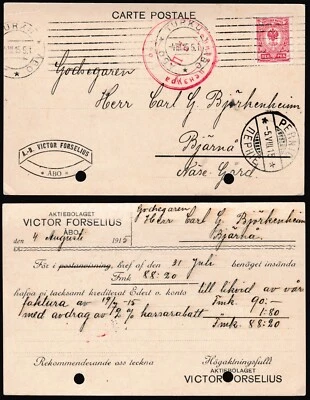 CARTE POSTALE
Godsegaren
Herr Carl G. Björkenheim
Bjärnå
Näse Gård
A.-B. VICTOR FORSELIUS
ÅBO
PERNIÖ
5.VIII.15
ПЕРНІЭ
AKTIEBOLAGET
VICTOR FORSELIUS
ÅBO
Godsegaren
Herr Carl G. Björkenheim
Bjärnå
den 4 Augusti 1915
För i postanvisning, bref af den 31 Juli benäget insända
Fmk 88:20
hafva vi tacksamt krediterat Edert v. konto till likvid av vår
faktura av 19/7-15 Fmk 90:-
med avdrag av 2% kassarabatt 1:80
Fmk. 88:20
Rekommenderande oss teckna
Högaktningsfullt
AKTIEBOLAGET
VICTOR FORSELIUS